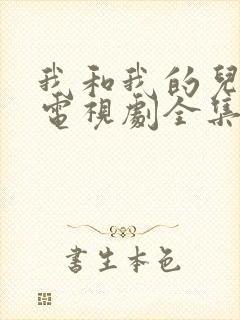 我和我的兒
電視劇全集
書生本色